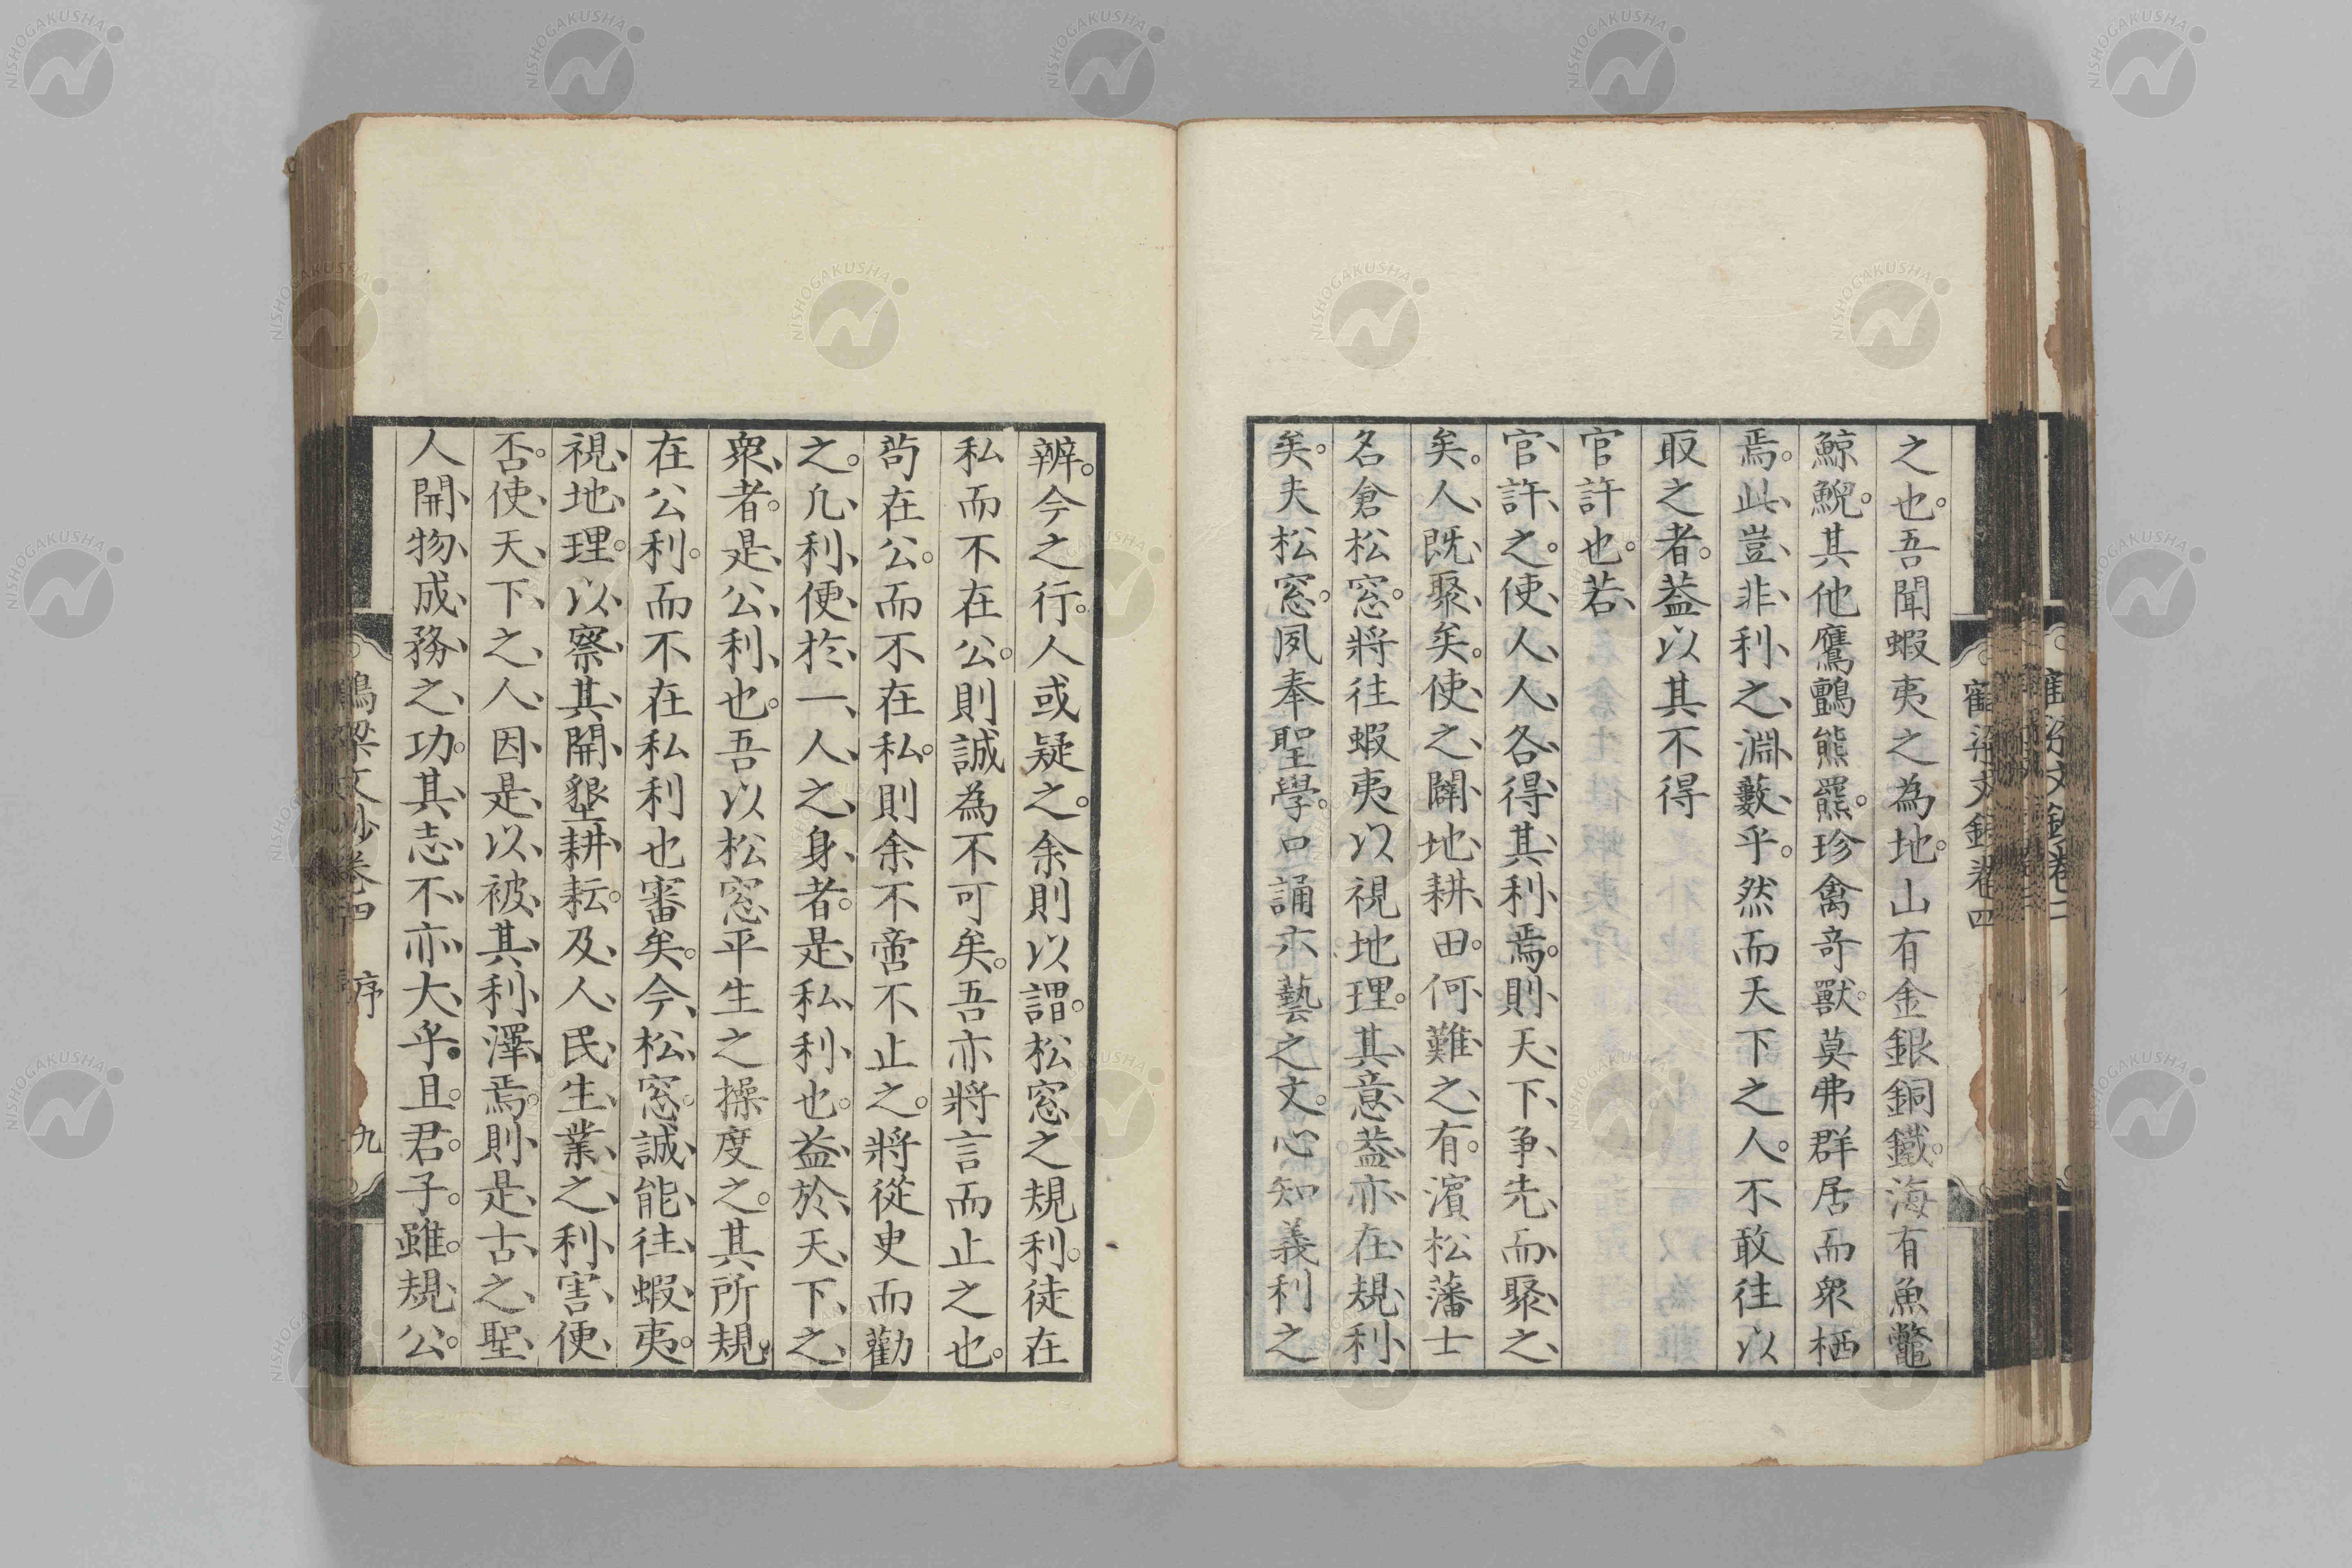 之也。吾聞蝦夷之為地。山有金銀銅鐵。海有魚鼈
鯨鯢。其他鷹鸇熊羆。珍禽奇獸。莫弗群居而衆栖
焉。此豈非利之淵藪乎。然而天下之人。不敢往以
取之者。葢以其不得
官許也。若
官許之。使人人各得其利焉。則天下争先而聚之
矣。人既聚矣。使之闢地耕田。何難之有。濱松藩士
名倉松窓。將往蝦夷以視地理。其意葢亦在規利
矣。夫松窓。夙奉聖學。口誦六藝之文。心知義利之
辨。今之行。人或疑之。余則以謂。松窓之規利。徒在
私而不在公。則誠為不可矣。吾亦將言而止之也。
苟在公。而不在私。則余不啻不止之。將從臾而勸
之。凡利便於一人之身者。是私利也。益於天下之
衆者。是公利也。吾以松窓平生之操度之。其所規
在公利。而不在私利也審矣。今松窓。誠能往蝦夷。
視地理。以察其開墾耕耘。及人民生業之利害便
否。使天下之人。因是以被其利澤焉。則是古之聖
人開物成務之功。其志不亦大乎。且君子。雖規公。
鶴梁文鈔卷四 序 九
鶴梁文鈔卷四
NISHOGAKUSHA